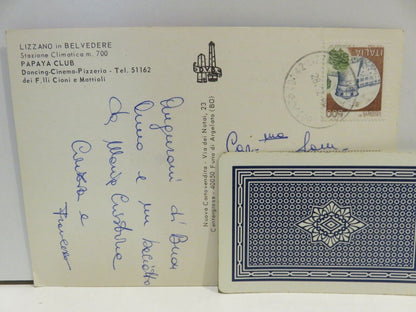 LIZZANO in BELVEDERE
Stazione Climatica m. 700
PAPAYA CLUB
Dancing-Cinema-Pizzeria - Tel. 51162
dei F.lli Cioni e Mattioli
Auguroni di Buon
Anno e un bacione
da Maria Cristina
e
Francesco
Nuova Cartovendita - Via dei Notai, 23
Centergross - 40050 Funo di Argelato (BO)
ITALIA
600
Car.ma